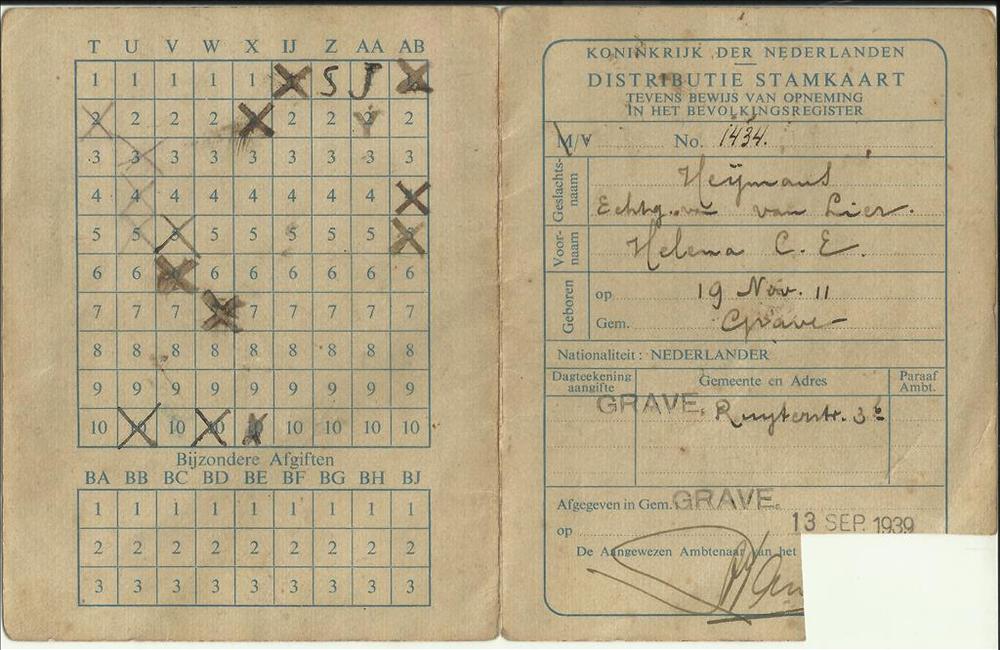 T U V W X IJ Z AA AB
1 1 1 1 1 S J
2 2 2 2 2 2 2 2
3 3 3 3 3 3 3 3 3
4 4 4 4 4 4 4 4
5 5 5 5 5 5 5 5 5
6 6 6 6 6 6 6 6 6
7 7 7 7 7 7 7 7
8 8 8 8 8 8 8 8 8
9 9 9 9 9 9 9 9 9
10 10 10 10 10 10 10 10 10
Bijzondere Afgiften
BA BB BC BD BE BF BG BH BJ
1 1 1 1 1 1 1 1 1
2 2 2 2 2 2 2 2 2
3 3 3 3 3 3 3 3 3
KONINKRIJK DER NEDERLANDEN
DISTRIBUTIE STAMKAART
TEVENS BEWIJS VAN OPNEMING
IN HET BEVOLKINGSREGISTER
M/V No. 1434.
Geslachtsnaam Heijmans
Echtg. v. van Lier.
Voornaam Helena C. E.
Geboren op 19 Nov. 11
Gem. Grave
Nationaliteit: NEDERLANDER
Dagteekening aangifte Gemeente en Adres Paraaf Ambt.
GRAVE. Ruyterstr. 3
Afgegeven in Gem. GRAVE.
op 13 SEP. 1939
De Aangewezen Ambtenaar van het